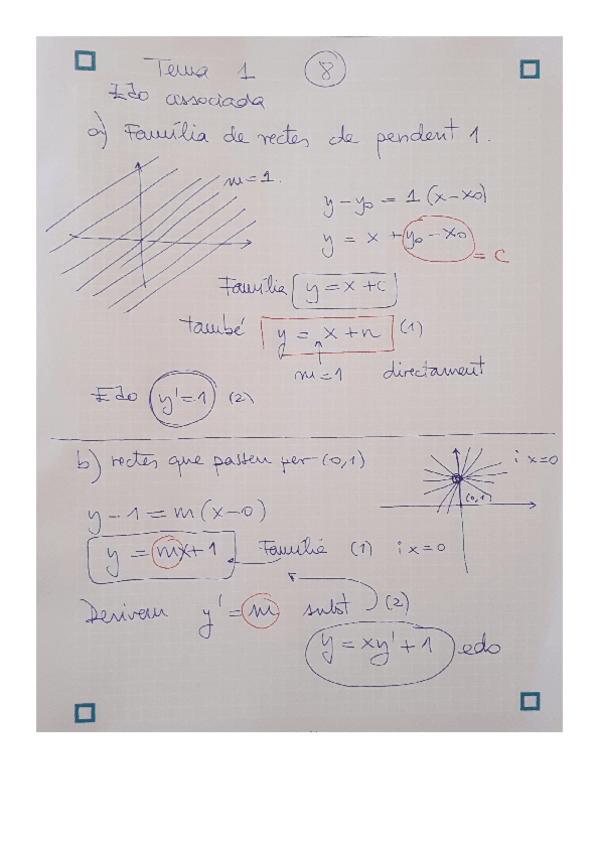 Tema 1 8
Edo associada
a) Família de rectes de pendent 1.
m=1.
y-y₀ = 1(x-x₀)
y = x + y₀-x₀
= C
Família y=x+c
també y = x+n (1)
m=1 directament
Edo y'=1 (2)
b) rectes que passen per (0,1)
i x=0
(0,1)
y-1=m(x-0)
y = mx+1 Família (1) i x=0
Derivem y'=m subst (2)
y=xy'+1 edo